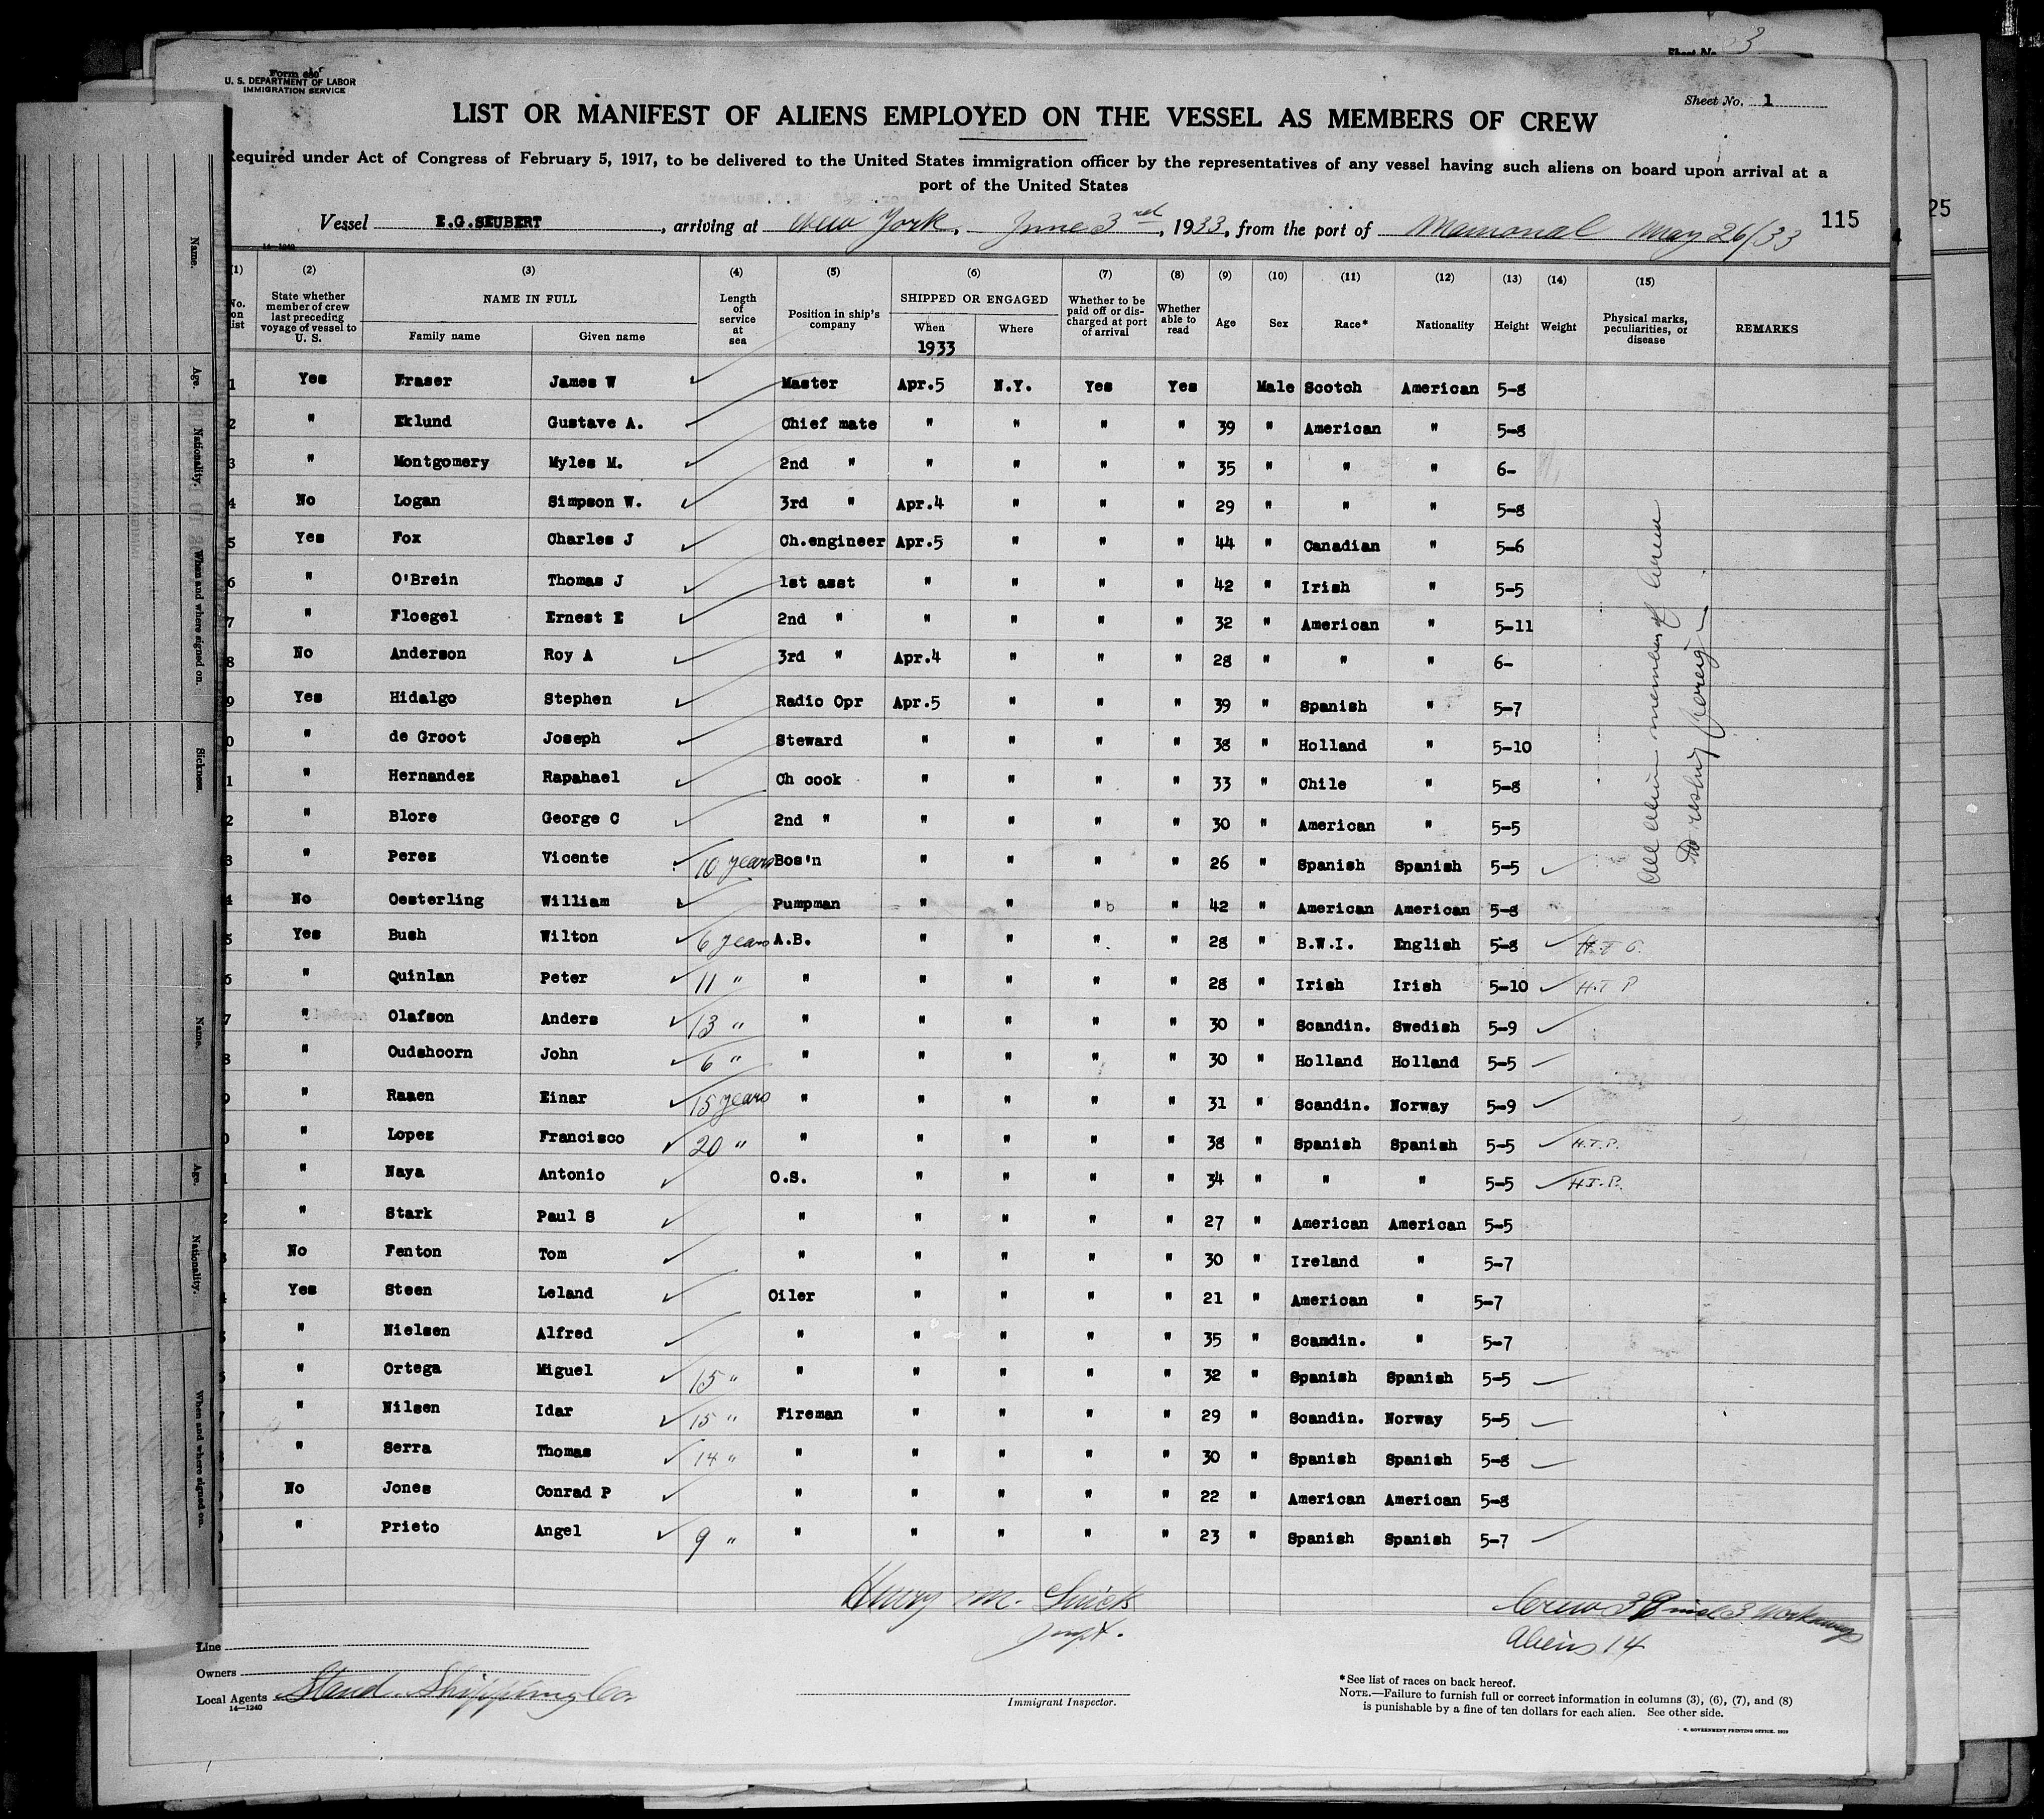 Sheet No. 3
Form 680
U. S. DEPARTMENT OF LABOR
IMMIGRATION SERVICE
Sheet No. 1
LIST OR MANIFEST OF ALIENS EMPLOYED ON THE VESSEL AS MEMBERS OF CREW
Required under Act of Congress of February 5, 1917, to be delivered to the United States immigration officer by the representatives of any vessel having such aliens on board upon arrival at a
port of the United States
Vessel E.G.SEUBERT, arriving at New York, June 3rd, 1933, from the port of Mamonal May 26/33 115
25
4
14-1240
(1) (2) (3) (4) (5) (6) (7) (8) (9) (10) (11) (12) (13) (14) (15)
No. on list | State whether member of crew last preceding voyage of vessel to U. S. | NAME IN FULL Family name Given name | Length of service at sea | Position in ship's company | SHIPPED OR ENGAGED When 1933 Where | Whether to be paid off or discharged at port of arrival | Whether able to read | Age | Sex | Race* | Nationality | Height | Weight | Physical marks, peculiarities, or disease | REMARKS
1 Yes Fraser James W Master Apr.5 N.Y. Yes Yes Male Scotch American 5-8
2 " Eklund Gustave A. Chief mate " " " " 39 " American " 5-8
3 " Montgomery Myles M. 2nd " " " " " 35 " " " 6-
4 No Logan Simpson W. 3rd " Apr.4 " " " 29 " " " 5-8
5 Yes Fox Charles J Ch.engineer Apr.5 " " " 44 " Canadian " 5-6
6 " O'Brein Thomas J 1st asst " " " " 42 " Irish " 5-5
7 " Floegel Ernest E 2nd " " " " " 32 " American " 5-11
8 No Anderson Roy A 3rd " Apr.4 " " " 28 " " " 6-
9 Yes Hidalgo Stephen Radio Opr Apr.5 " " " 39 " Spanish " 5-7
0 " de Groot Joseph Steward " " " " 38 " Holland " 5-10
1 " Hernandez Rapahael Ch cook " " " " 33 " Chile " 5-8
2 " Blore George C 2nd " " " " " 30 " American " 5-5
3 " Perez Vicente 10 years Bos'n " " " " 26 " Spanish Spanish 5-5
4 No Oesterling William Pumpman " " " " 42 " American American 5-8
5 Yes Bush Wilton 6 years A.B. " " " " 28 " B.W.I. English 5-8
6 " Quinlan Peter 11 " " " " " " 28 " Irish Irish 5-10 H.T.P
7 " Olafson Anders 13 " " " " " " 30 " Scandin. Swedish 5-9
8 " Oudshoorn John 6 " " " " " " 30 " Holland Holland 5-5
9 " Raaen Einar 15 years " " " " " 31 " Scandin. Norway 5-9
0 " Lopez Francisco 20 " " " " " " 38 " Spanish Spanish 5-5 H.T.P.
1 " Naya Antonio O.S. " " " " 34 " " " 5-5 H.T.P.
2 " Stark Paul S " " " " " 27 " American American 5-5
3 No Fenton Tom " " " " " 30 " Ireland " 5-7
4 Yes Steen Leland Oiler " " " " 21 " American " 5-7
5 " Nielsen Alfred " " " " " 35 " Scandin. " 5-7
6 " Ortega Miguel 15 " " " " " " 32 " Spanish Spanish 5-5
7 " Nilsen Idar 15 " Fireman " " " " 29 " Scandin. Norway 5-5
8 " Serra Thomas 14 " " " " " " 30 " Spanish Spanish 5-8
9 No Jones Conrad P " " " " " 22 " American American 5-8
0 " Prieto Angel 9 " " " " " " 23 " Spanish Spanish 5-7
All alien members of crew
to reship foreign
Henry M.
Inspt.
Crew 38 incl 3 workaways
Aliens 14
Line
Owners
Local Agents Stand. Shipping Co
14-1240
Immigrant Inspector.
*See list of races on back hereof.
NOTE.—Failure to furnish full or correct information in columns (3), (6), (7), and (8)
is punishable by a fine of ten dollars for each alien. See other side.
GOVERNMENT PRINTING OFFICE
Name.
Age.
Nationality.
When and where signed on.
Sickness.
Name.
Age.
Nationality.
When and where signed on.